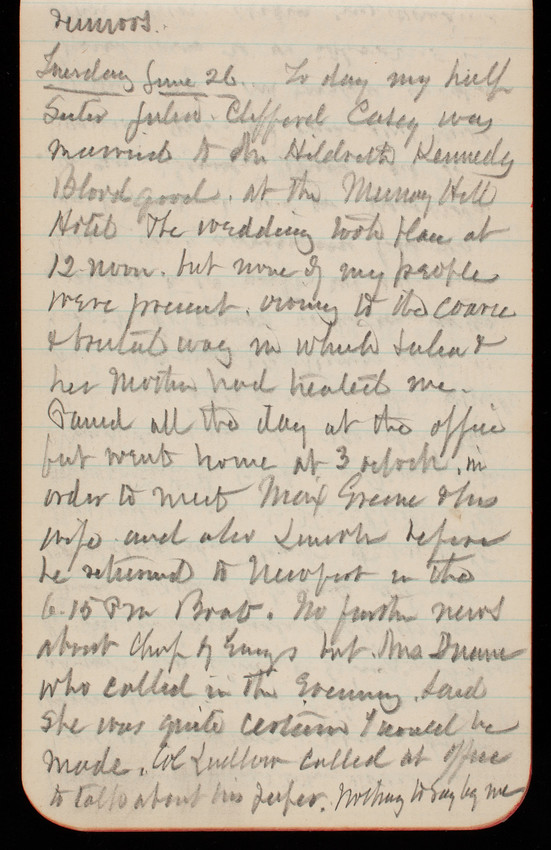 rumors.
Tuesday June 26. To day my half
Sister Julia Clifford Casey was
married to Mr Hildreth Kennedy
Bloodgood, at the Murray Hill
Hotel The wedding took place at
12 noon. but none of my people
were present. owing to the coarse
& brutal way in which Julia &
her Mother had treated me.
all the day at the office
but went home at 3 oclock, in
order to meet Greene & his
wife and also Lincoln before
he returned to Newport in the
6.15 Pm Boat. No further news
about Chf of Engs but Mrs Duane
who called in the Evening, said
She was quite certain I would be
made. Col Ludlow called at office
to talk about his . Nothing to say by me